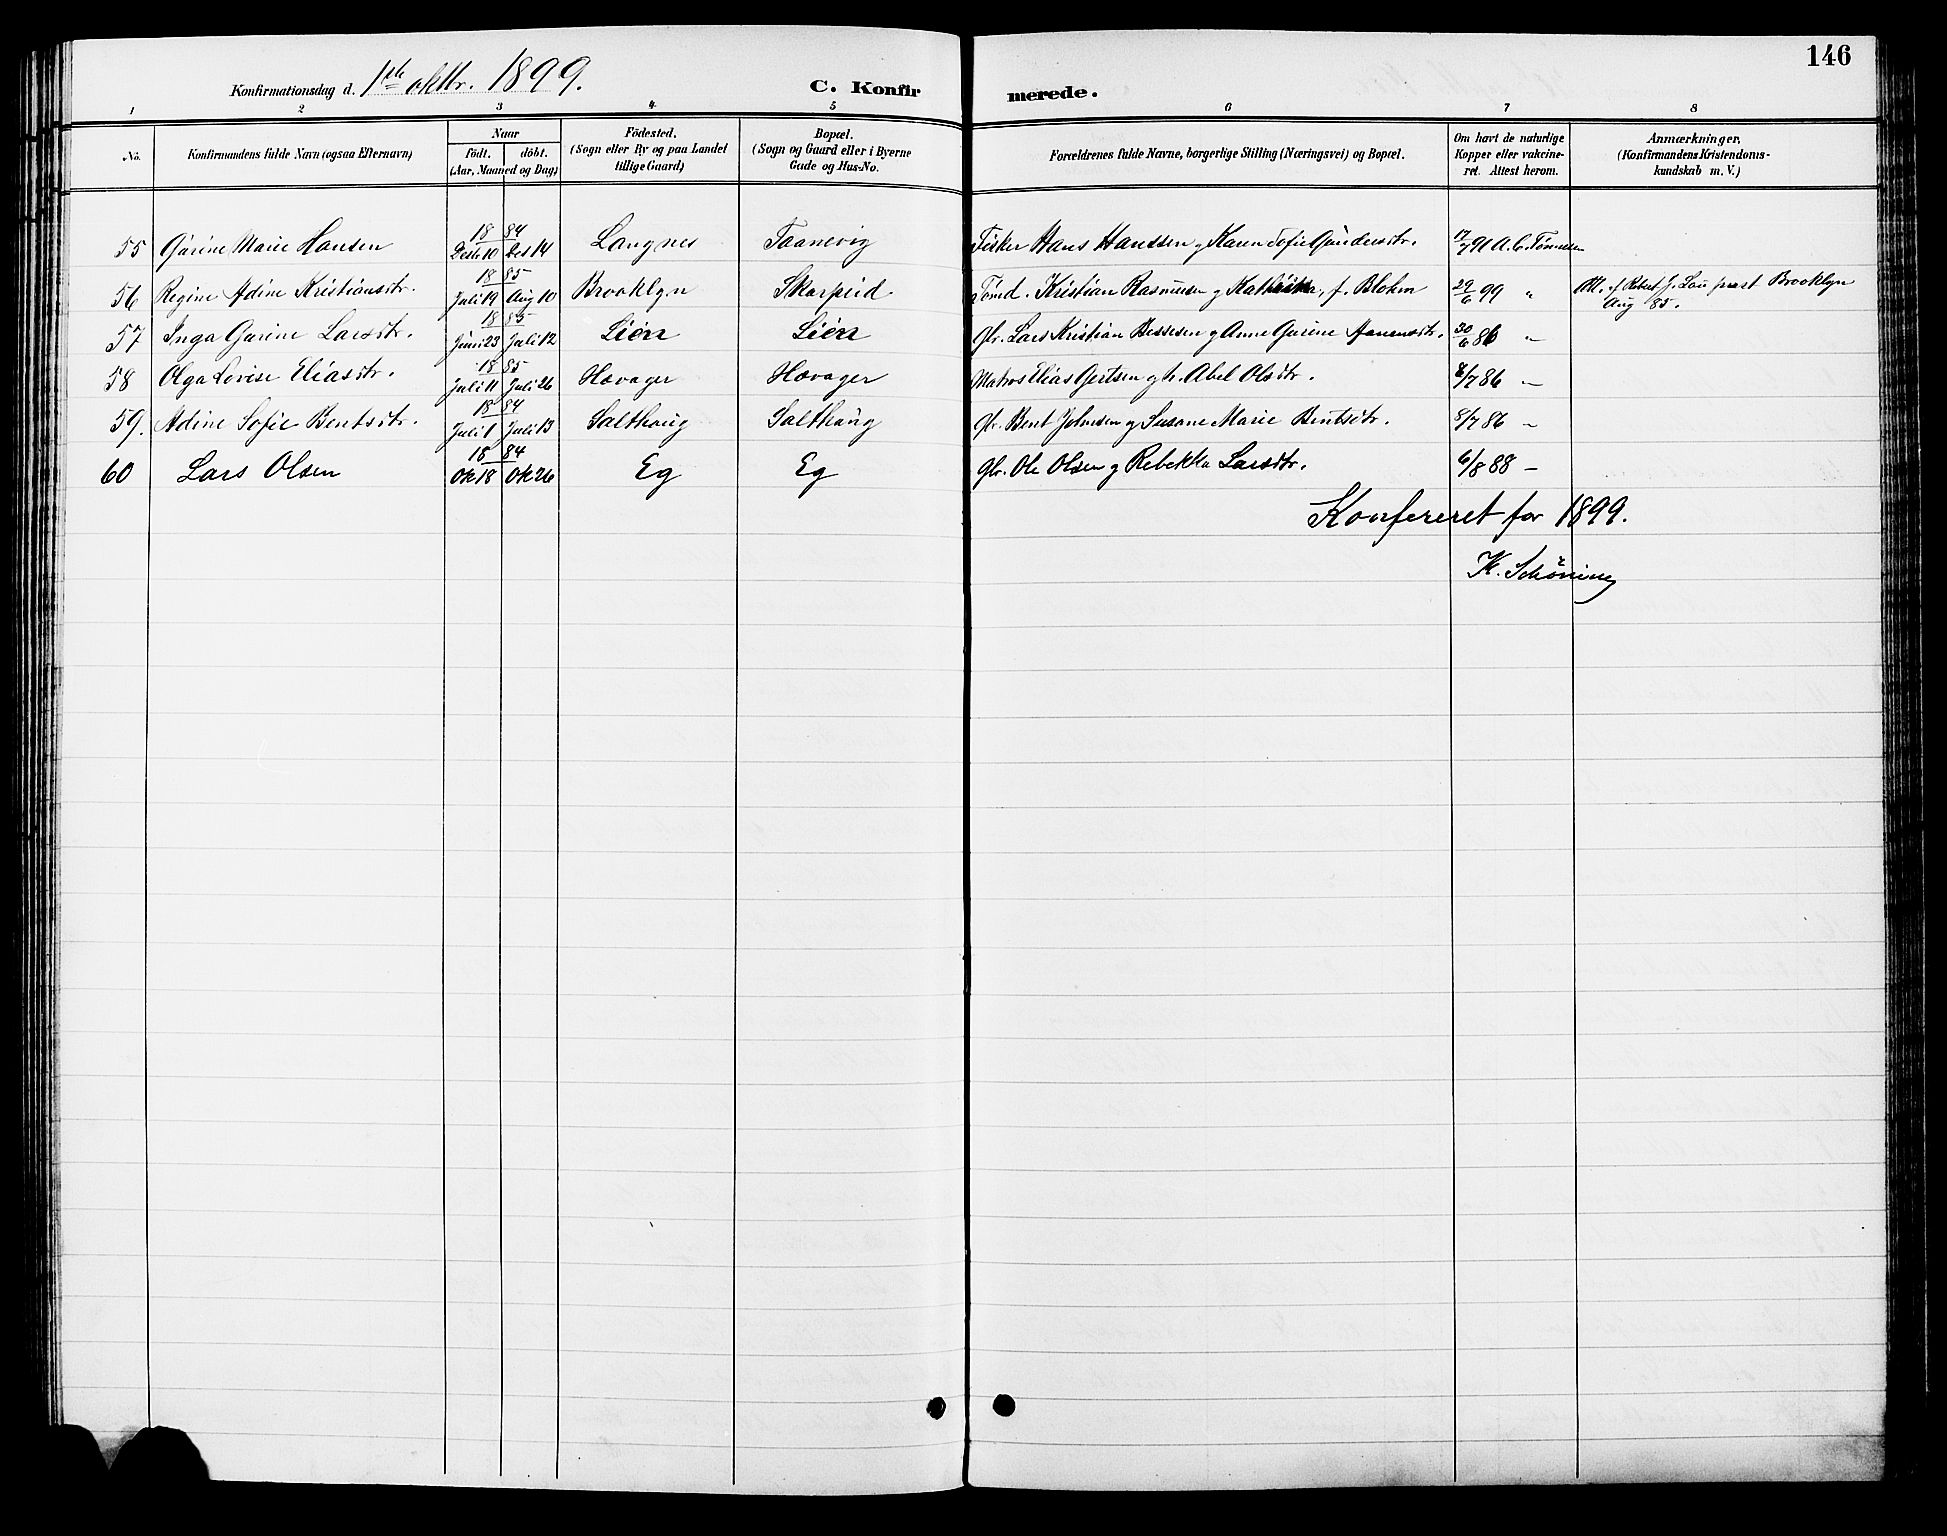 146
Konfirmationsdag d. 1ste oktbr. 1899. C. Konfirmerede.
1 2 3 4 5 6 7 8
No. Konfirmandens fulde Navn (ogsaa Efternavn) Naar födt. döbt. (Aar, Maaned og Dag) Födested. (Sogn eller By og paa Landet tillige Gaard) Bopæl. (Sogn og Gaard eller i Byerne Gade og Hus-No. Forældrenes fulde Navne, borgerlige Stilling (Næringsvei) og Bopæl. Om havt de naturlige Kopper eller vakcineret. Attest herom. Anmærkninger, (Konfirmandens Kristendomskundskab m. V.)
18 84
55 Garine Marie Hansen Desb 10 Des 14 Langnes Taanevig Fisker Hans Hanssen og Karen Sofie Gundersdtr. 17/7 91 A. C. Tønnessen
18 85
56 Regine Adine Kristiansdtr. Juli 19 Aug 10 Brooklyn Skarpeid Tømd. Kristian Rasmussen og , f. Blohm 29/6 99 " Att. f. Robert J. præst Brooklyn
Aug 85.
18 85
57 Inga Garine Larsdtr. Juni 23 Juli 12 Lien Lien gbr. Lars Kristian Bessesen og Anne Garine Aanensdtr. 30/6 86 "
18 85
58 Olga Lovise Eliasdtr. Juli 11 Juli 26 Hovager Hovager Matros Elias Gertsen og h. Abel Olsdtr. 8/7 86 "
18 84
59. Adine Sofie Bentsdtr. Juli 1 Juli 13 Salthaug Salthaug gbr. Bent Johnsen og Susane Marie Bentsdtr. 8/7 86 "
18 84
60 Lars Olsen Ok 18 Ok 26 Eg Eg gbr. Ole Olsen og Rebekka Larsdtr. 6/8 88 –
Konfereret for 1899.
K. Schöning